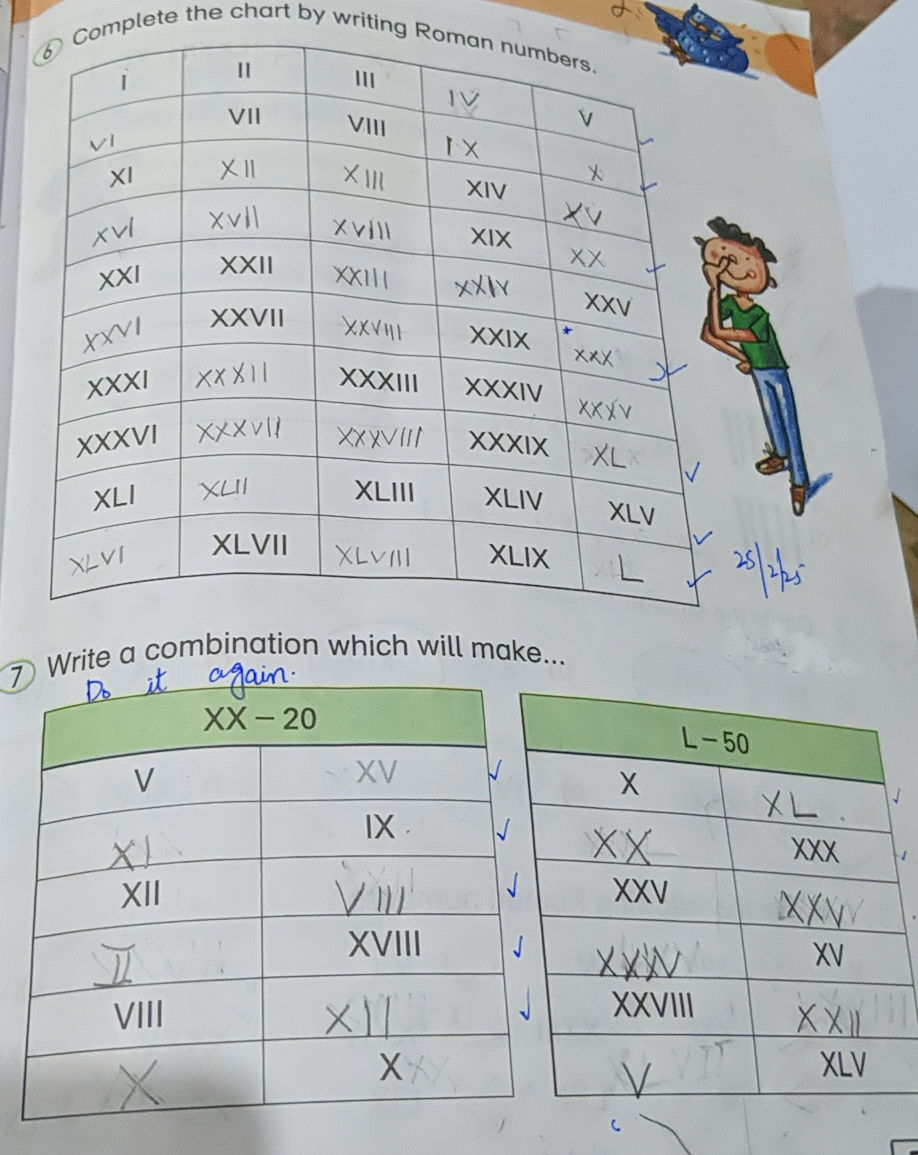 6 Complete the chart by writing Roman numbers.
I II III IV V
VI VII VIII IX X
XI XII XIII XIV XV
XVI XVII XVIII XIX XX
XXI XXII XXIII XXIV XXV
XXVI XXVII XXVIII XXIX XXX
XXXI XXXII XXXIII XXXIV XXXV
XXXVI XXXVII XXXVIII XXXIX XL
XLI XLII XLIII XLIV XLV
XLVI XLVII XLVIII XLIX L
25/2/25
7 Write a combination which will make...
Do it again.
XX – 20
V XV
XI IX
XII VIII
II XVIII
VIII XII
X X
L – 50
X XL
XX XXX
XXV XXV
XXXV XV
XXVIII XXII
V XLV